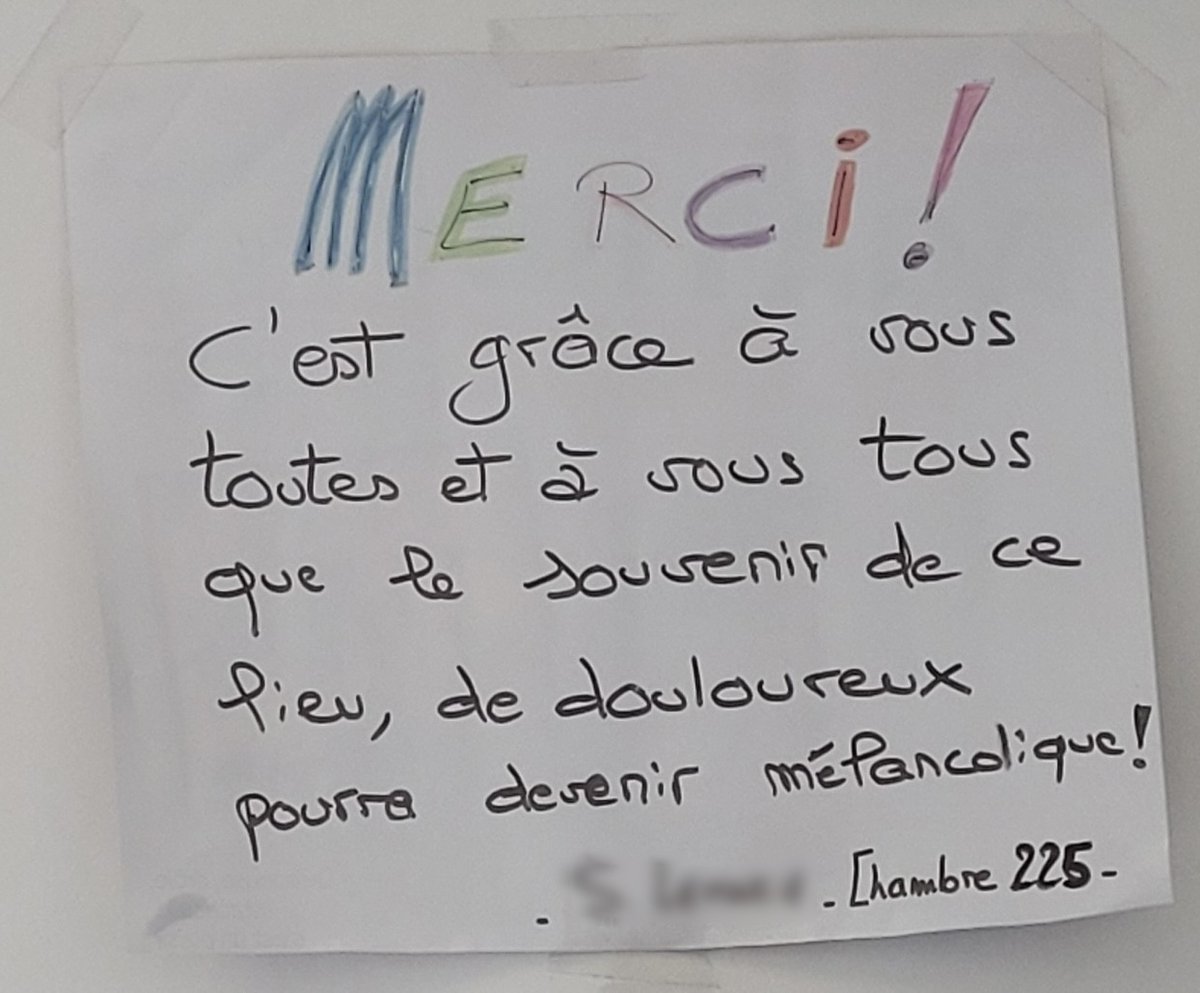 MERCi!
C'est grâce à vous
toutes et à vous tous
que le souvenir de ce
lieu, de douloureux
pourra devenir mélancolique!
- - Chambre 225 -